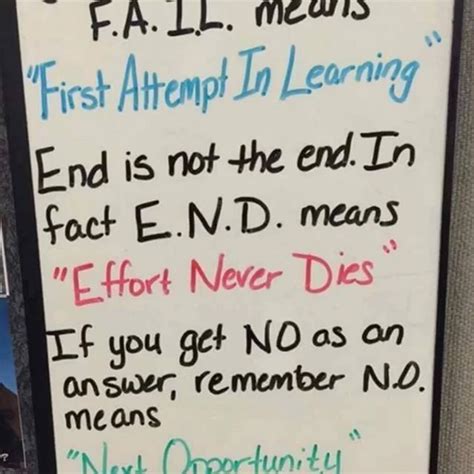 F.A.I.L. means
"First Attempt In Learning"
End is not the end. In
fact E.N.D. means
"Effort Never Dies"
If you get NO as an
answer, remember N.O.
means
"Next Opportunity"